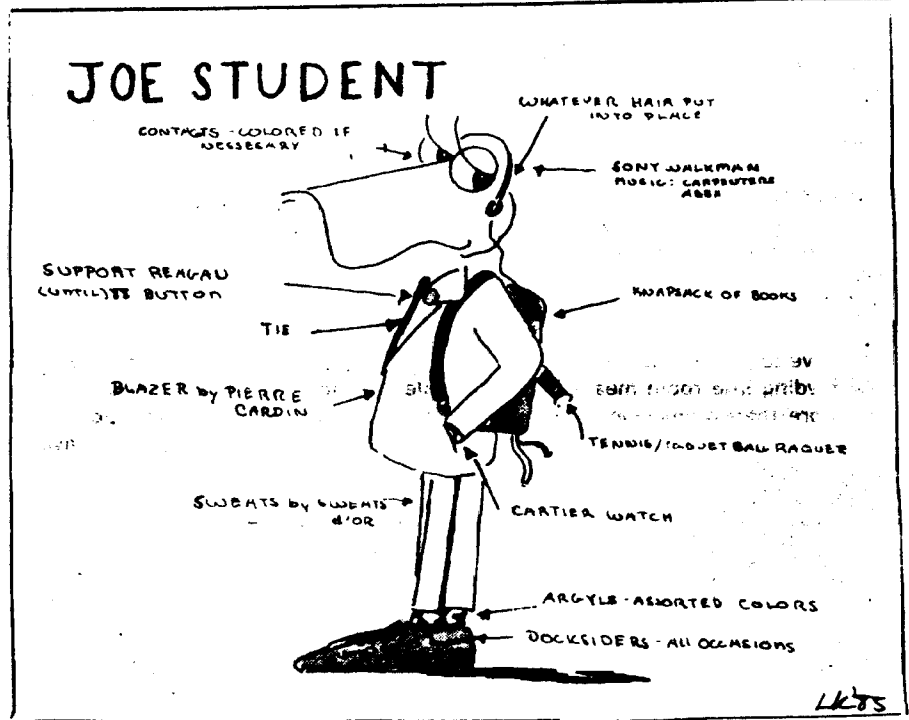 JOE STUDENT
WHATEVER HAIR PUT
INTO PLACE
CONTACTS - COLORED IF
NESSECARY
SONY WALKMAN
MUSIC: CARPENTERS
ABBA
SUPPORT REAGAN
(UNTIL) 88 BUTTON
KNAPSACK OF BOOKS
TIE
BLAZER by PIERRE
CARDIN
TENNIS/RAQUETBALL RAQUET
SWEATS by SWEATS
d'OR
CARTIER WATCH
ARGYLE - ASSORTED COLORS
DOCKSIDERS - All OCCASIONS
LK '85